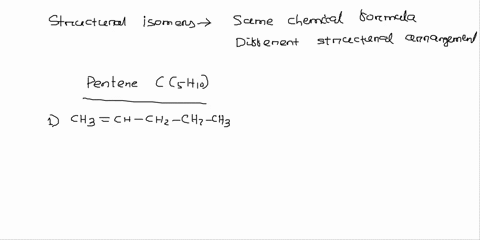 Structural isomers → Same chemical formula
Different structural arrangement
Pentene C(5H10)
1) CH3=CH-CH2-CH2-CH3